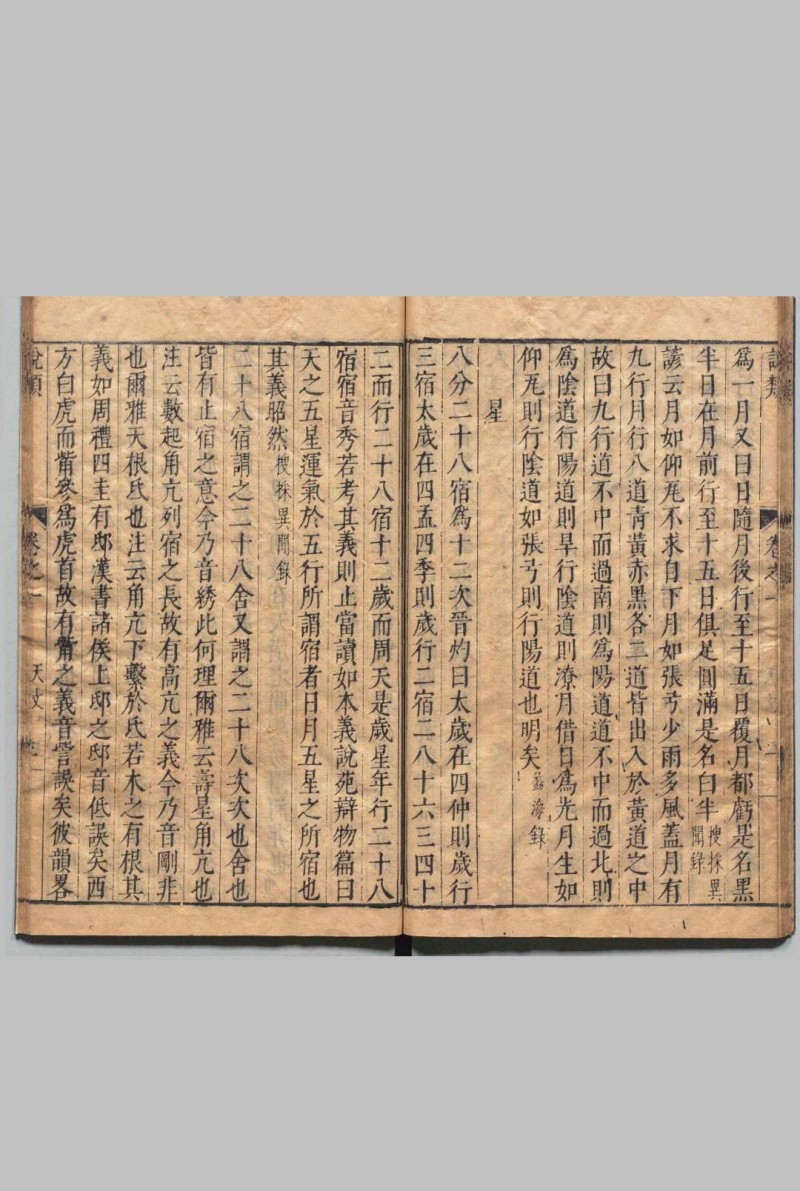 說類
卷之一
爲一月又曰日隨月後行至十五日覆月都虧是名黑
半日在月前行至十五日俱足圓滿是名白半搜採異聞錄
諺云月如仰瓦不求自下月如張弓少雨多風蓋月有
九行月行八道青黃赤黑各二道皆出入於黃道之中
故曰九行道不中而過南則爲陽道道不中而過北則
爲陰道行陽道則旱行陰道則潦月借日爲光月生如
仰瓦則行陰道如張弓則行陽道也明矣蠡海錄
星
八分二十八宿爲十二次晉灼曰太歲在四仲則歲行
三宿太歲在四孟四季則歲行二宿二八十六三四十
二而行二十八宿十二歲而周天是歲星年行二十八
宿宿音秀若考其義則止當讀如本義說苑辯物篇曰
天之五星運氣於五行所謂宿者日月五星之所宿也
其義昭然搜採異聞錄
二十八宿謂之二十八舍又謂之二十八次次也舍也
皆有止宿之意今乃音綉此何理爾雅云壽星角亢也
注云數起角亢列宿之長故有高亢之義今乃音剛非
也爾雅天根氐也注云角亢下繫於氐若木之有根其
義如周禮四圭有邸漢書諸侯上邸之邸音低誤矣西
方白虎而觜參爲虎首故有觜之義音訾誤矣彼韻畧
說類
卷之一
天文